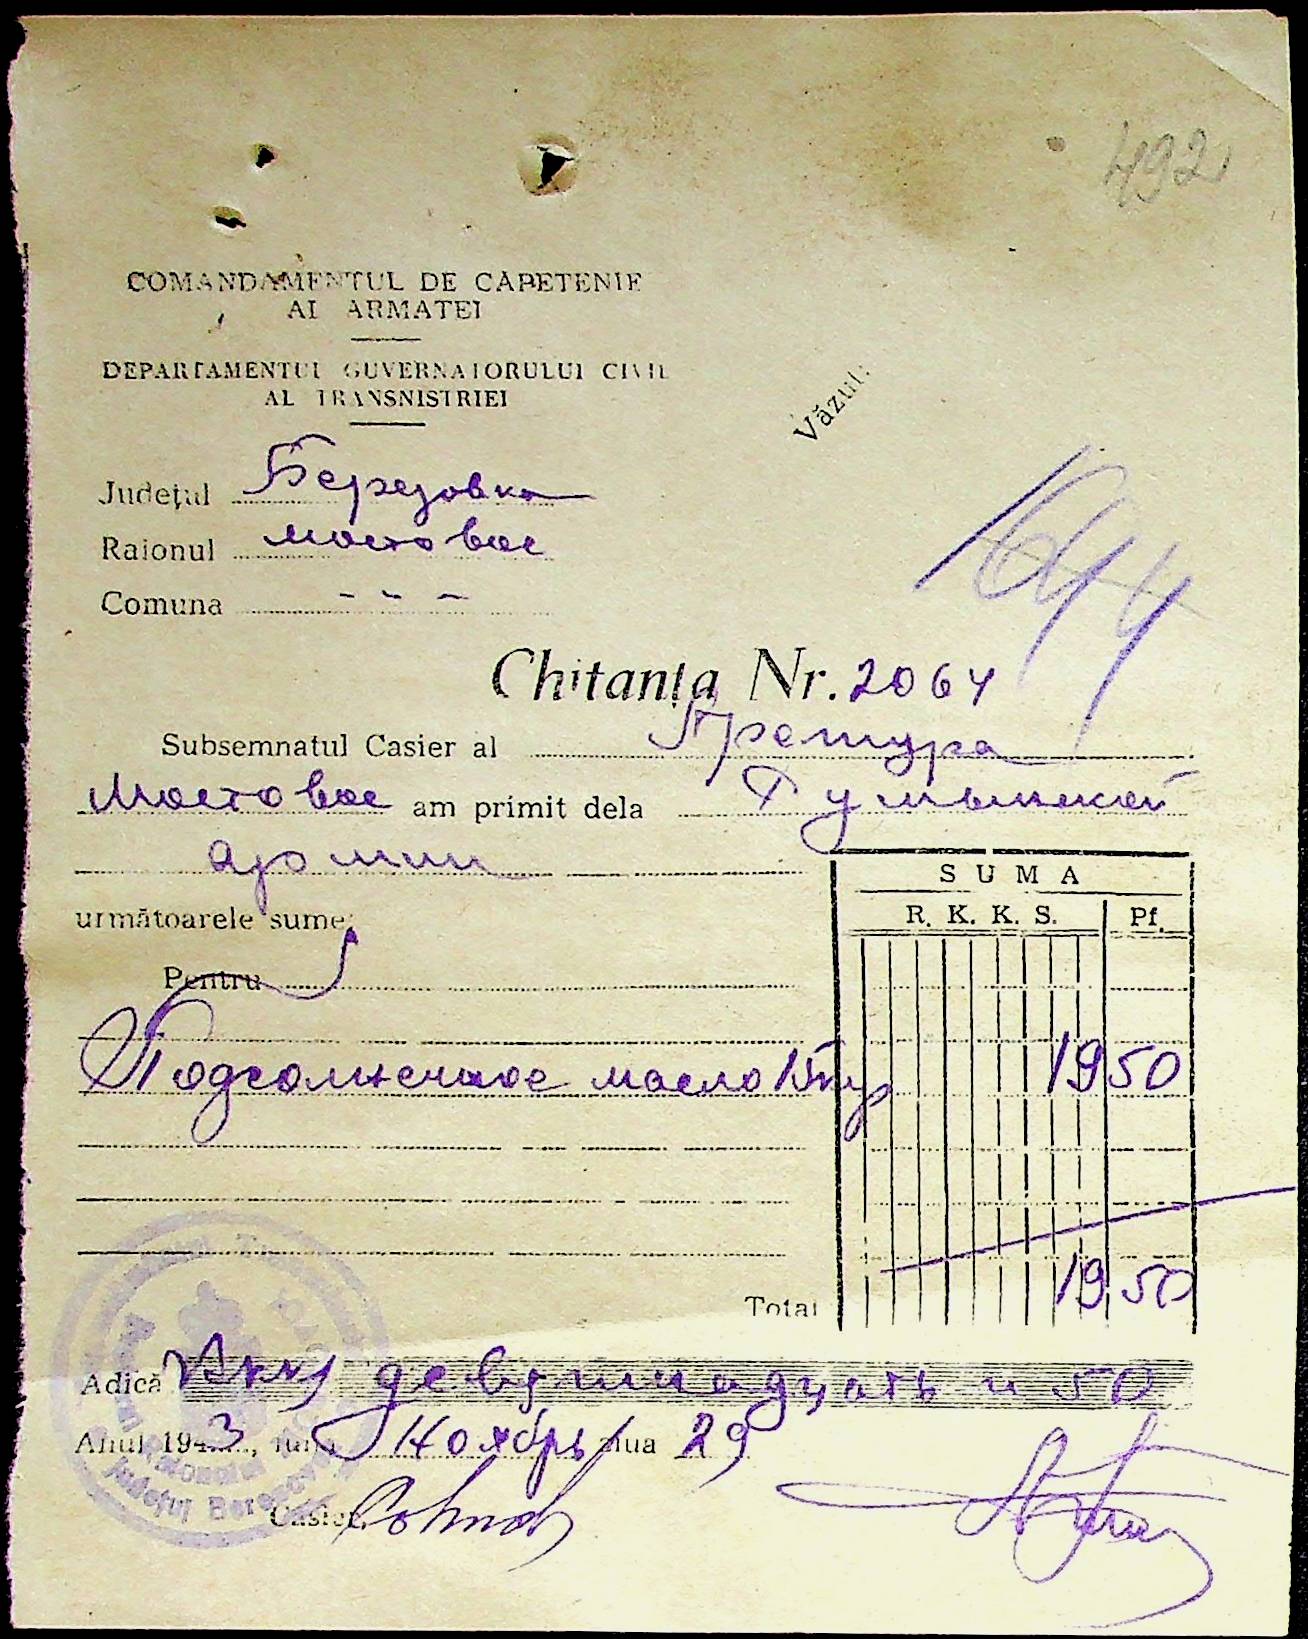 492
COMANDAMENTUL DE CAPETENIE
AL ARMATEI
DEPARTAMENTUL GUVERNATORULUI CIVIL
AL TRANSNISTRIEI
Văzut:
Județul Березовка
Raionul мостовое
Comuna - - -
Chitanța Nr. 2064
Subsemnatul Casier al Претура
Мостовое am primit dela Румынской
армии
următoarele sume:
SUMA
R. K. K. S. Pf.
Pentru
Подсолнечное масло 19 50
Total 19 50
Adică девятнадцать и 50
Anul 1943, luna Ноябрь ziua 29
Casier,
Județul Berezovca